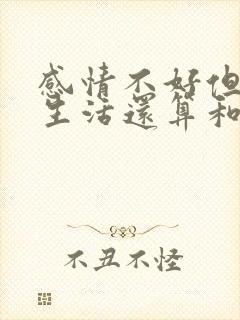 感情不好但
生活還算和
不丑不怪